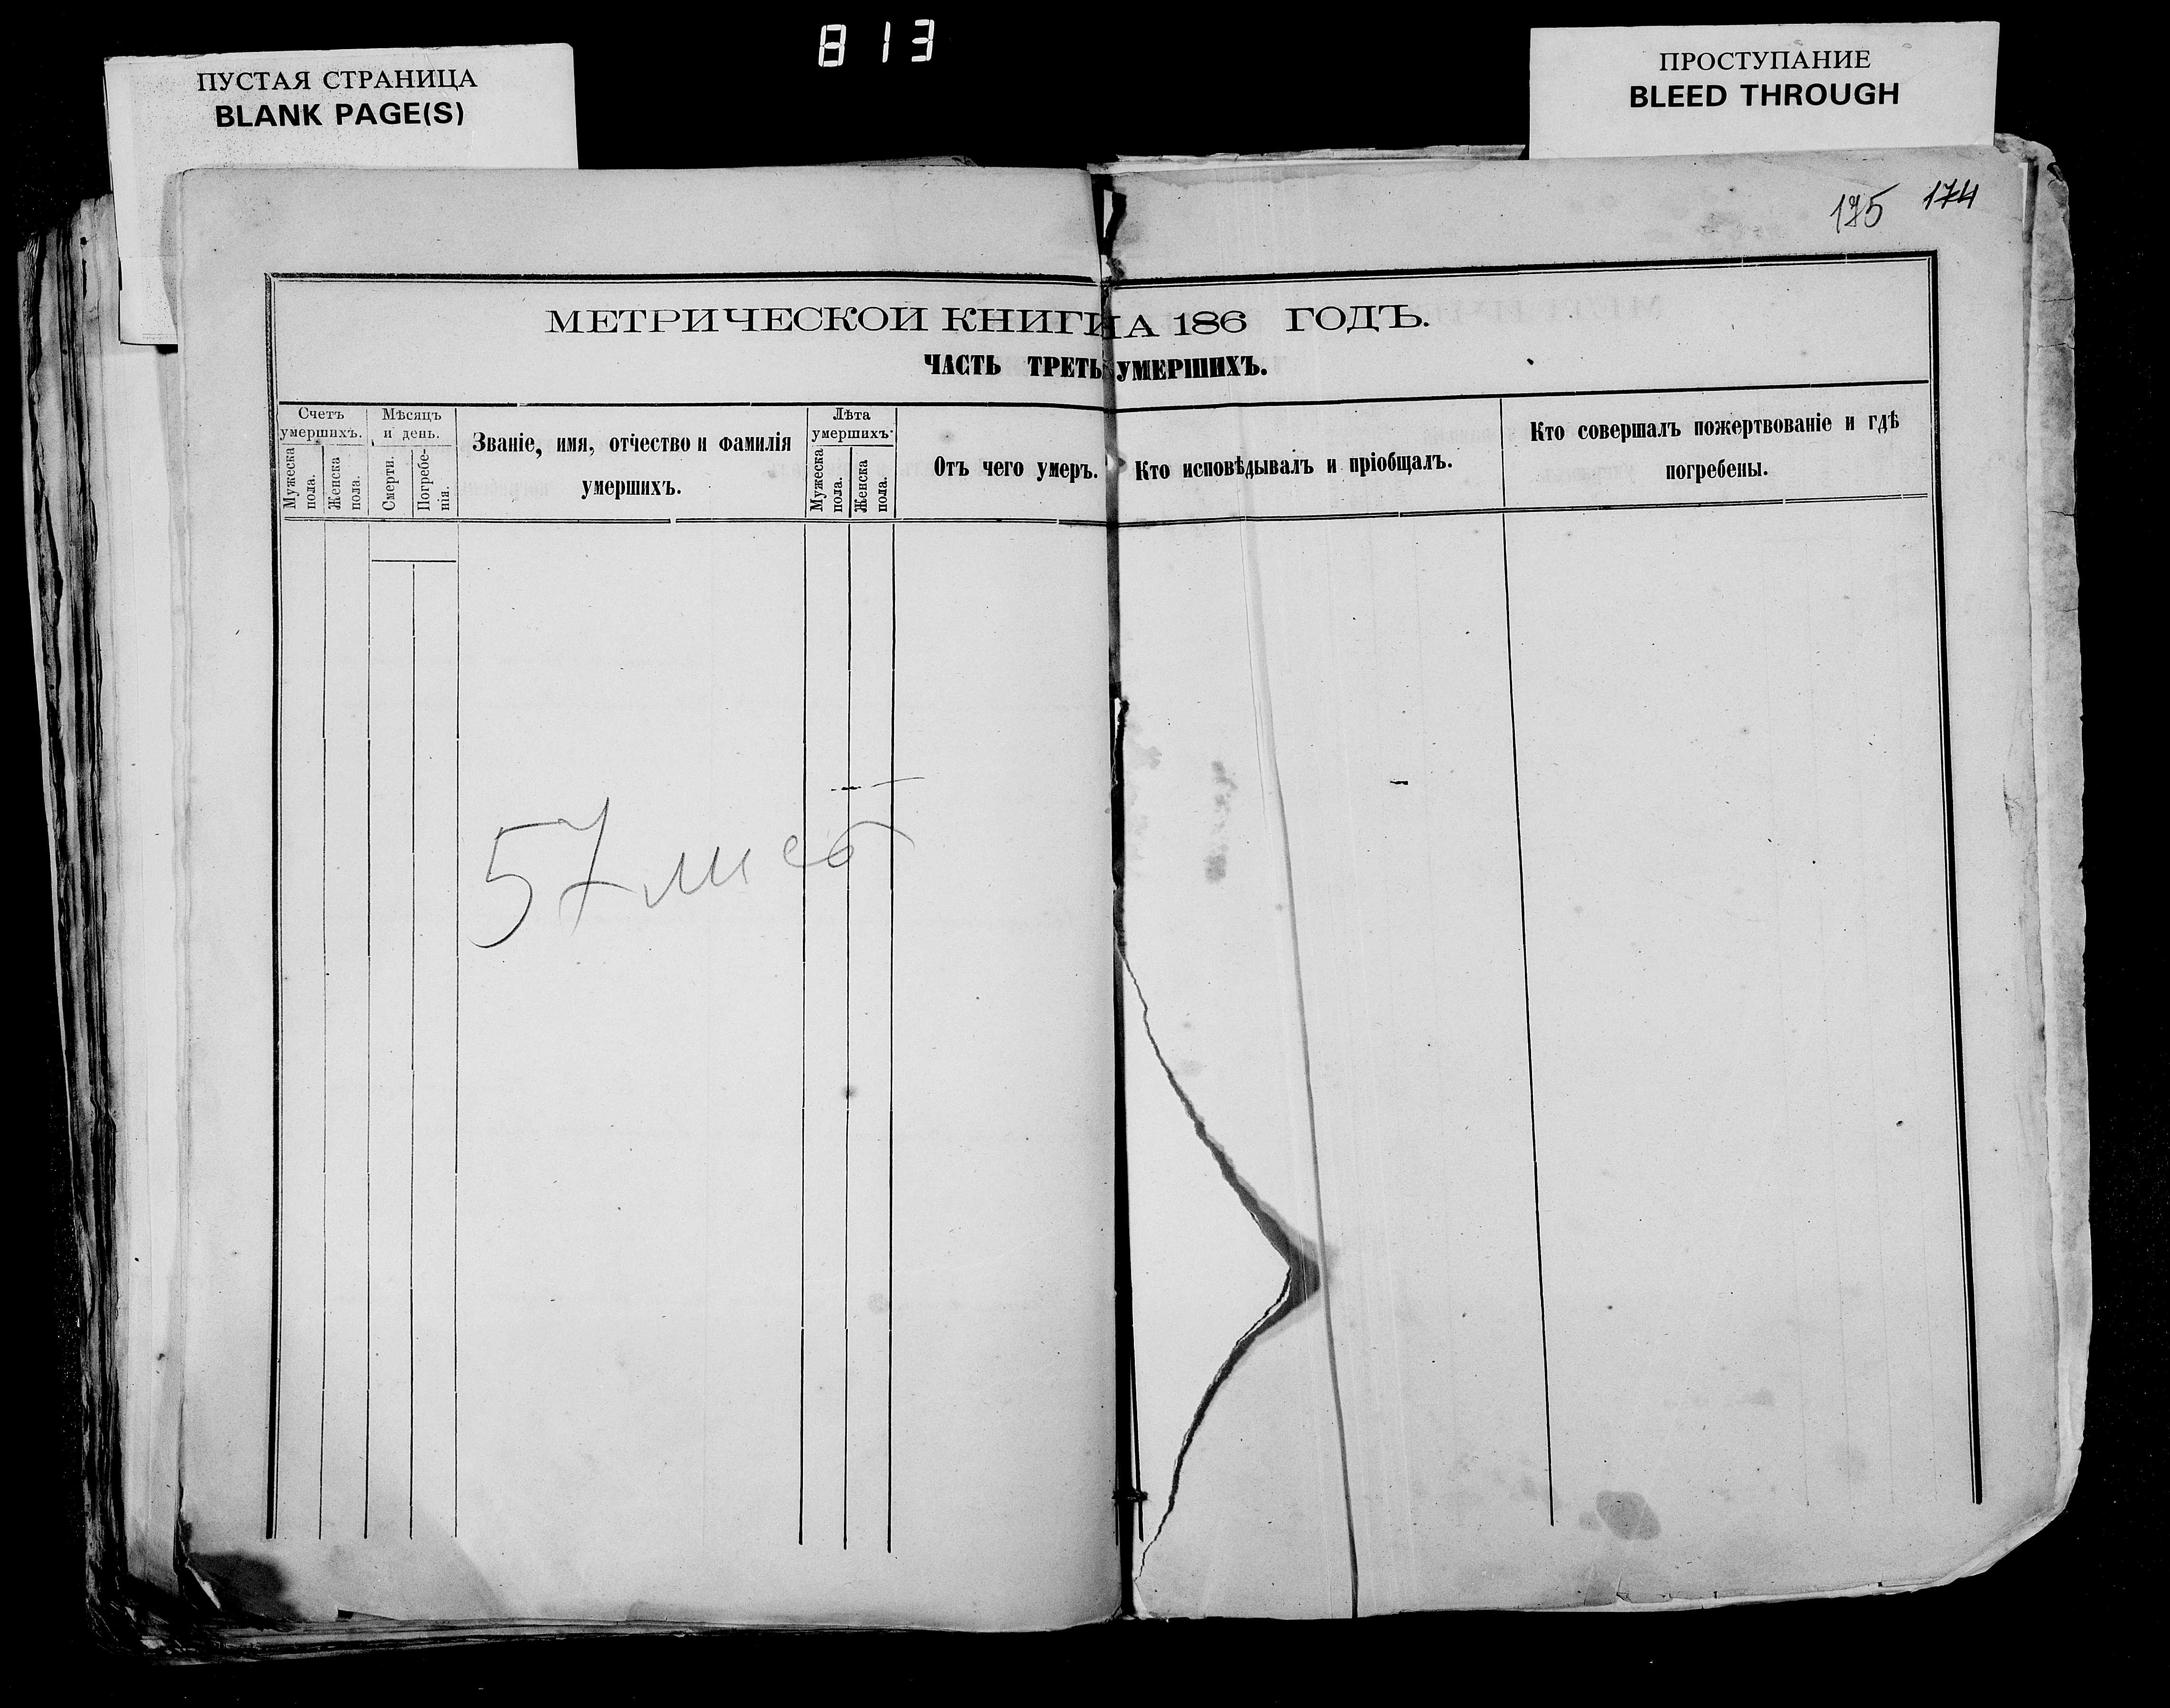 813
ПУСТАЯ СТРАНИЦА
BLANK PAGE(S)
ПРОСТУПАНИЕ
BLEED THROUGH
175 174
МЕТРИЧЕСКОЙ КНИГИ НА 186 ГОДЪ.
ЧАСТЬ ТРЕТЬ УМЕРШИХЪ.
Счетъ умершихъ.
Мужеска пола.
Женска пола.
Мѣсяцъ и день.
Смерти.
Погребе-
нія.
Званіе, имя, отчество и фамилія
умершихъ.
Лѣта умершихъ
Мужеска пола.
Женска пола.
Отъ чего умеръ.
Кто исповѣдывалъ и пріобщалъ.
Кто совершалъ пожертвованіе и гдѣ
погребены.
57